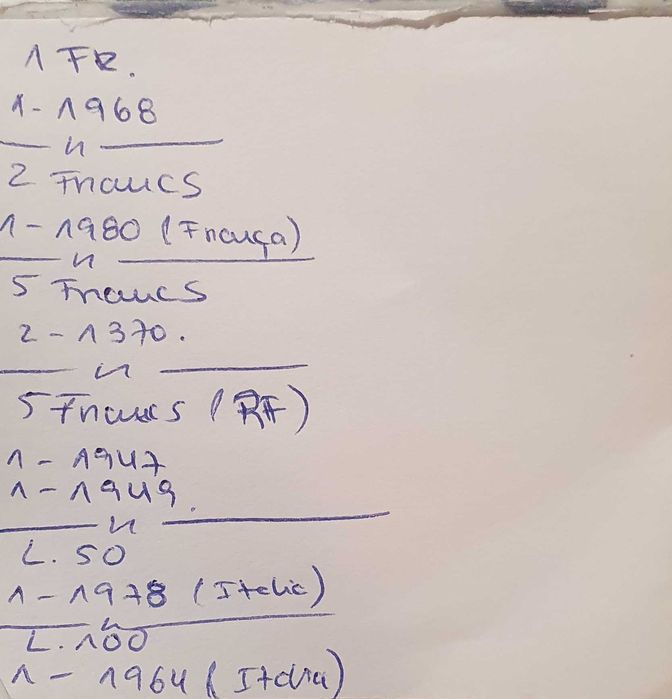 1 FR.
1-1968
— 11 —
2 Francs
1-1980 (França)
— 11 —
5 Francs
2-1370.
— 11 —
5 Francs (RF)
1-1947
1-1949.
— 11 —
L. 50
1-1978 (Italia)
— 11 —
L. 100
1-1964 (Italia)